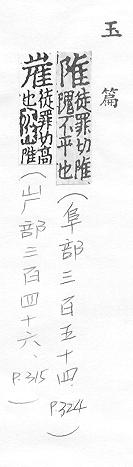 玉篇
陮徒罪切陮
隗不平也
(阜部三百五十四.P.324)
徒罪切高
也亦作陮
(屵部三百四十六、P.315)